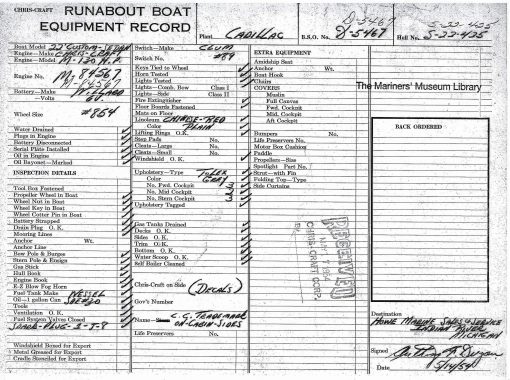 CHRIS-CRAFT
RUNABOUT BOAT
EQUIPMENT RECORD
Plant CADILLAC
B.S.O. No. D-5467
D-5467
Hull No. S-22-435
S-22-435
Boat Model 22' CUSTOM-SEDAN
Engine—Make CHRIS-CRAFT
Engine—Model M-130 H.P.
Engine No. M-84567
M-84567
Battery—Make WILLARD
—Volts 6V.
Wheel Size #864
Water Drained
Plugs in Engine
Battery Disconnected
Serial Plate Installed
Oil in Engine
Oil Bayonet—Marked
INSPECTION DETAILS
Tool Box Fastened
Propeller Wheel in Boat
Wheel Nut in Boat
Wheel Key in Boat
Wheel Cotter Pin in Boat
Battery Strapped
Drain Plug O. K.
Mooring Lines
Anchor Wt.
Anchor Line
Bow Pole & Burgee
Stern Pole & Ensign
Gas Stick
Hull Book
Engine Book
E-Z Blow Fog Horn
Fuel Tank Make
Oil—1 gallon Can
Tools
Ventilation O. K.
Fuel System Valves Closed
SPARK-PLUG
Windshield Boxed for Export
Metal Greased for Export
Cradle Stenciled for Export
Switch—Make CLUM
Switch—No. #89
Keys Tied to Wheel
Horn Tested
Lights Tested
Lights—Comb. Bow Class I
Lights—Side Class II
Fire Extinguisher
Floor Boards Fastened
Mats on Floor
Linoleum CHINESE-RED
Color PLAIN
Lifting Rings O.K.
Step Pads No.
Cleats—Large No.
Cleats—Small No.
Windshield O. K.
Upholstery—Type
Color GRAY
No. Fwd. Cockpit
No. Mid Cockpit
No. Stern Cockpit
Upholstery Tagged
Gas Tanks Drained
Decks O. K.
Sides O. K.
Trim O. K.
Bottom O. K.
Water Scoop O. K.
Self Bailer Cleaned
Chris-Craft on Side (DECALS)
Gov't Number
Name—Stern C.G. TRADEMARK
ON-CABIN-SIDES
Life Preservers No.
EXTRA EQUIPMENT
Amidship Seat
Anchor Wt.
Boat Hook
Chairs
COVERS
Muslin
Full Canvas
Fwd. Cockpit
Mid. Cockpit
Aft Cockpit
Bumpers No.
Life Preservers No.
Motor Box Cushion
Paddle
Propellers—Size
Spotlight Part No.
Strut—with Fin
Folding Top—Type
Side Curtains
RECEIVED
CHRIS-CRAFT CORP.
The Mariners' Museum Library
BACK ORDERED
Destination
HOWE MARINE SALES & SERVICE
MICHIGAN
Signed
5/14/54